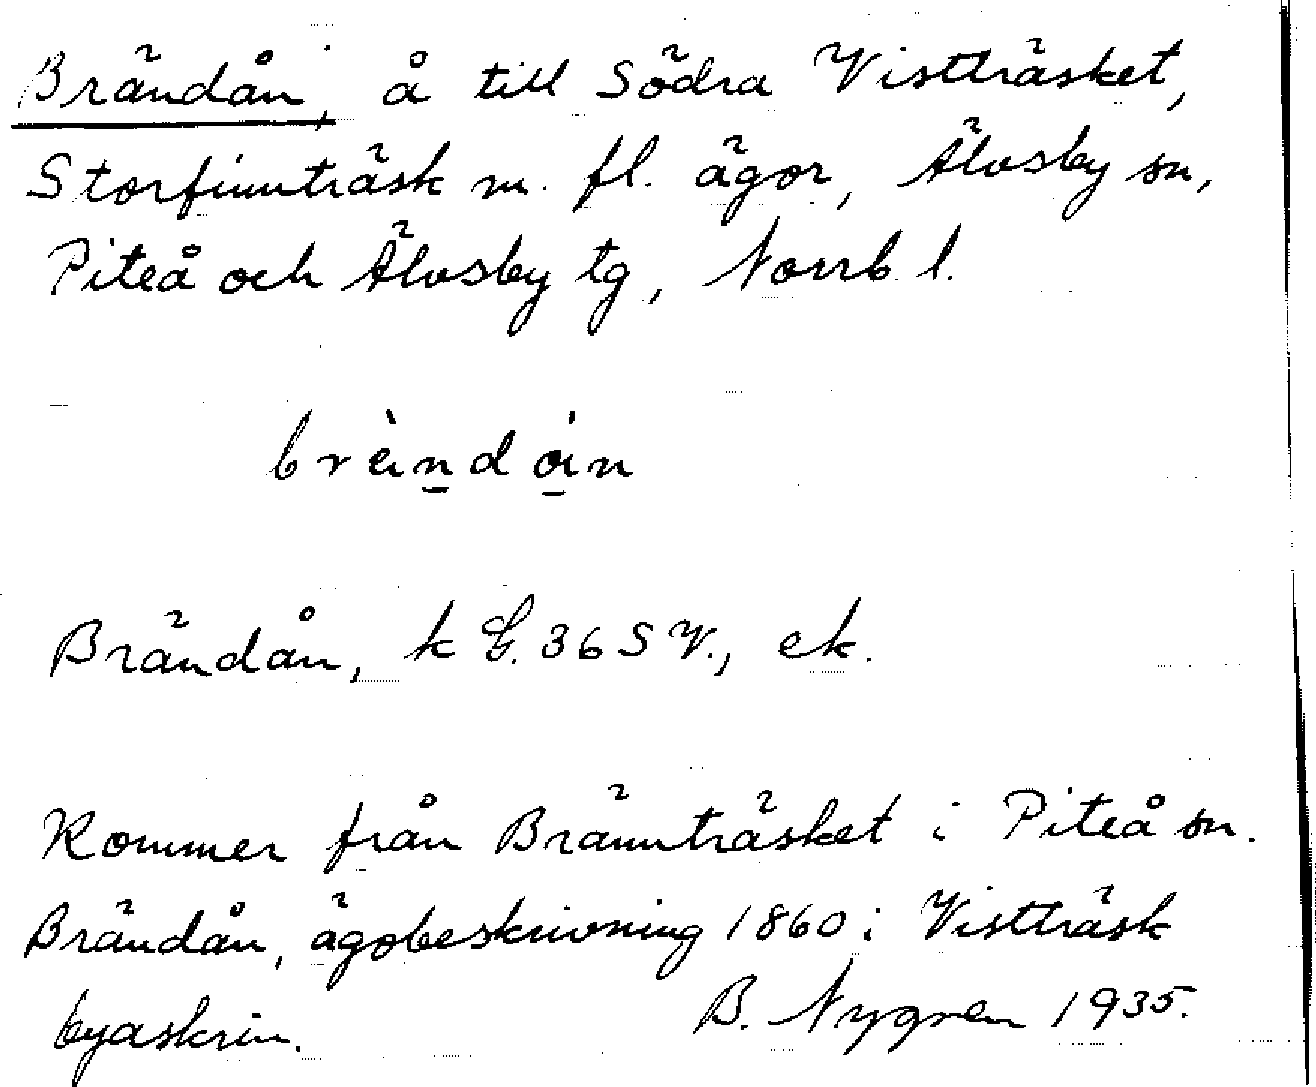 Brändån, å till Södra Vistträsket,
Storfinnträsk m. fl. ägor, Älvsby sn,
Piteå och Älvsby tg, Norrb l.
brä̀ndǻn
Brändån, k G. 36 S V., ek.
Kommer från Brännträsket i Piteå sn.
Brändån, ägobeskrivning 1860 i Vistträsk
byaskrin. B. Nygren 1935.